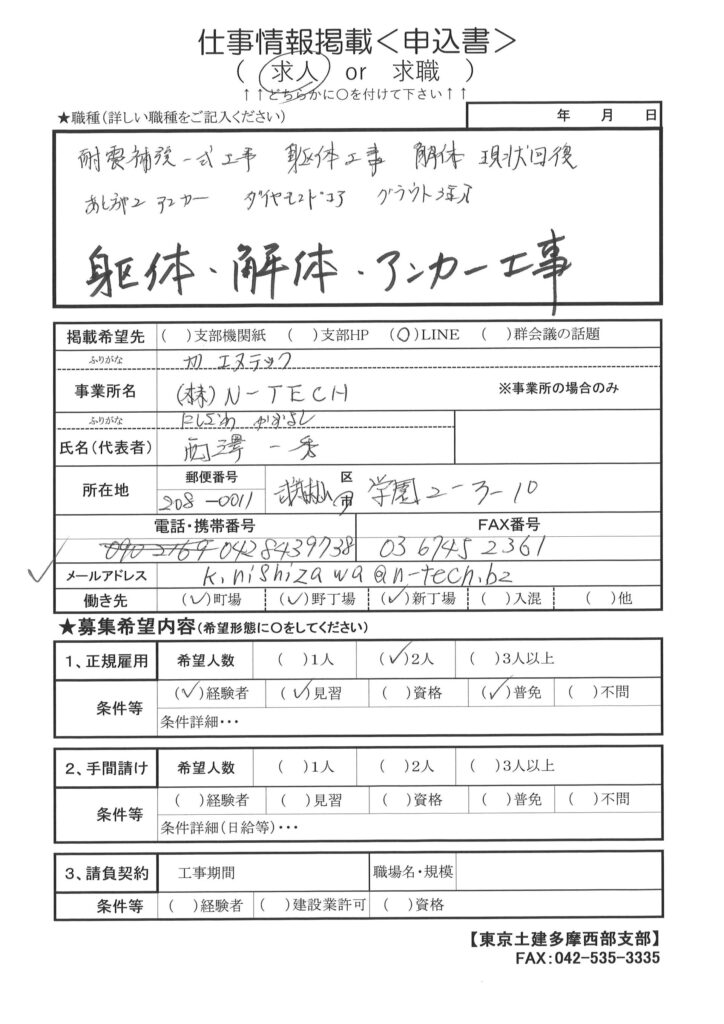 仕事情報掲載＜申込書＞
（ 求人 or 求職 ）
↑↑どちらかに○を付けて下さい↑↑
★職種（詳しい職種をご記入ください）
年 月 日
耐震補強一式工事 躯体工事 解体 現状回復
アンカー ダイヤモンドコア グラウト
躯体・解体・アンカー工事
掲載希望先 （ ）支部機関紙 （ ）支部HP （○）LINE （ ）群会議の話題
ふりがな エヌテック
事業所名 （株）N-TECH ※事業所の場合のみ
ふりがな にしざわ かずよし
氏名（代表者） 西澤 一秀
所在地 郵便番号 区
208-0011 市 学園2-3-10
電話・携帯番号 FAX番号
090 2169 0428439738 03 6745 2361
メールアドレス k.nishizawa@n-tech.bz
働き先 （✓）町場 （✓）野丁場 （✓）新丁場 （ ）入混 （ ）他
★募集希望内容（希望形態に○をしてください）
1、正規雇用 希望人数 （ ）1人 （✓）2人 （ ）3人以上
条件等 （✓）経験者 （✓）見習 （ ）資格 （✓）普免 （ ）不問
条件詳細・・・
2、手間請け 希望人数 （ ）1人 （ ）2人 （ ）3人以上
条件等 （ ）経験者 （ ）見習 （ ）資格 （ ）普免 （ ）不問
条件詳細（日給等）・・・
3、請負契約 工事期間 職場名・規模
条件等 （ ）経験者 （ ）建設業許可 （ ）資格
【東京土建多摩西部支部】
FAX：042-535-3335